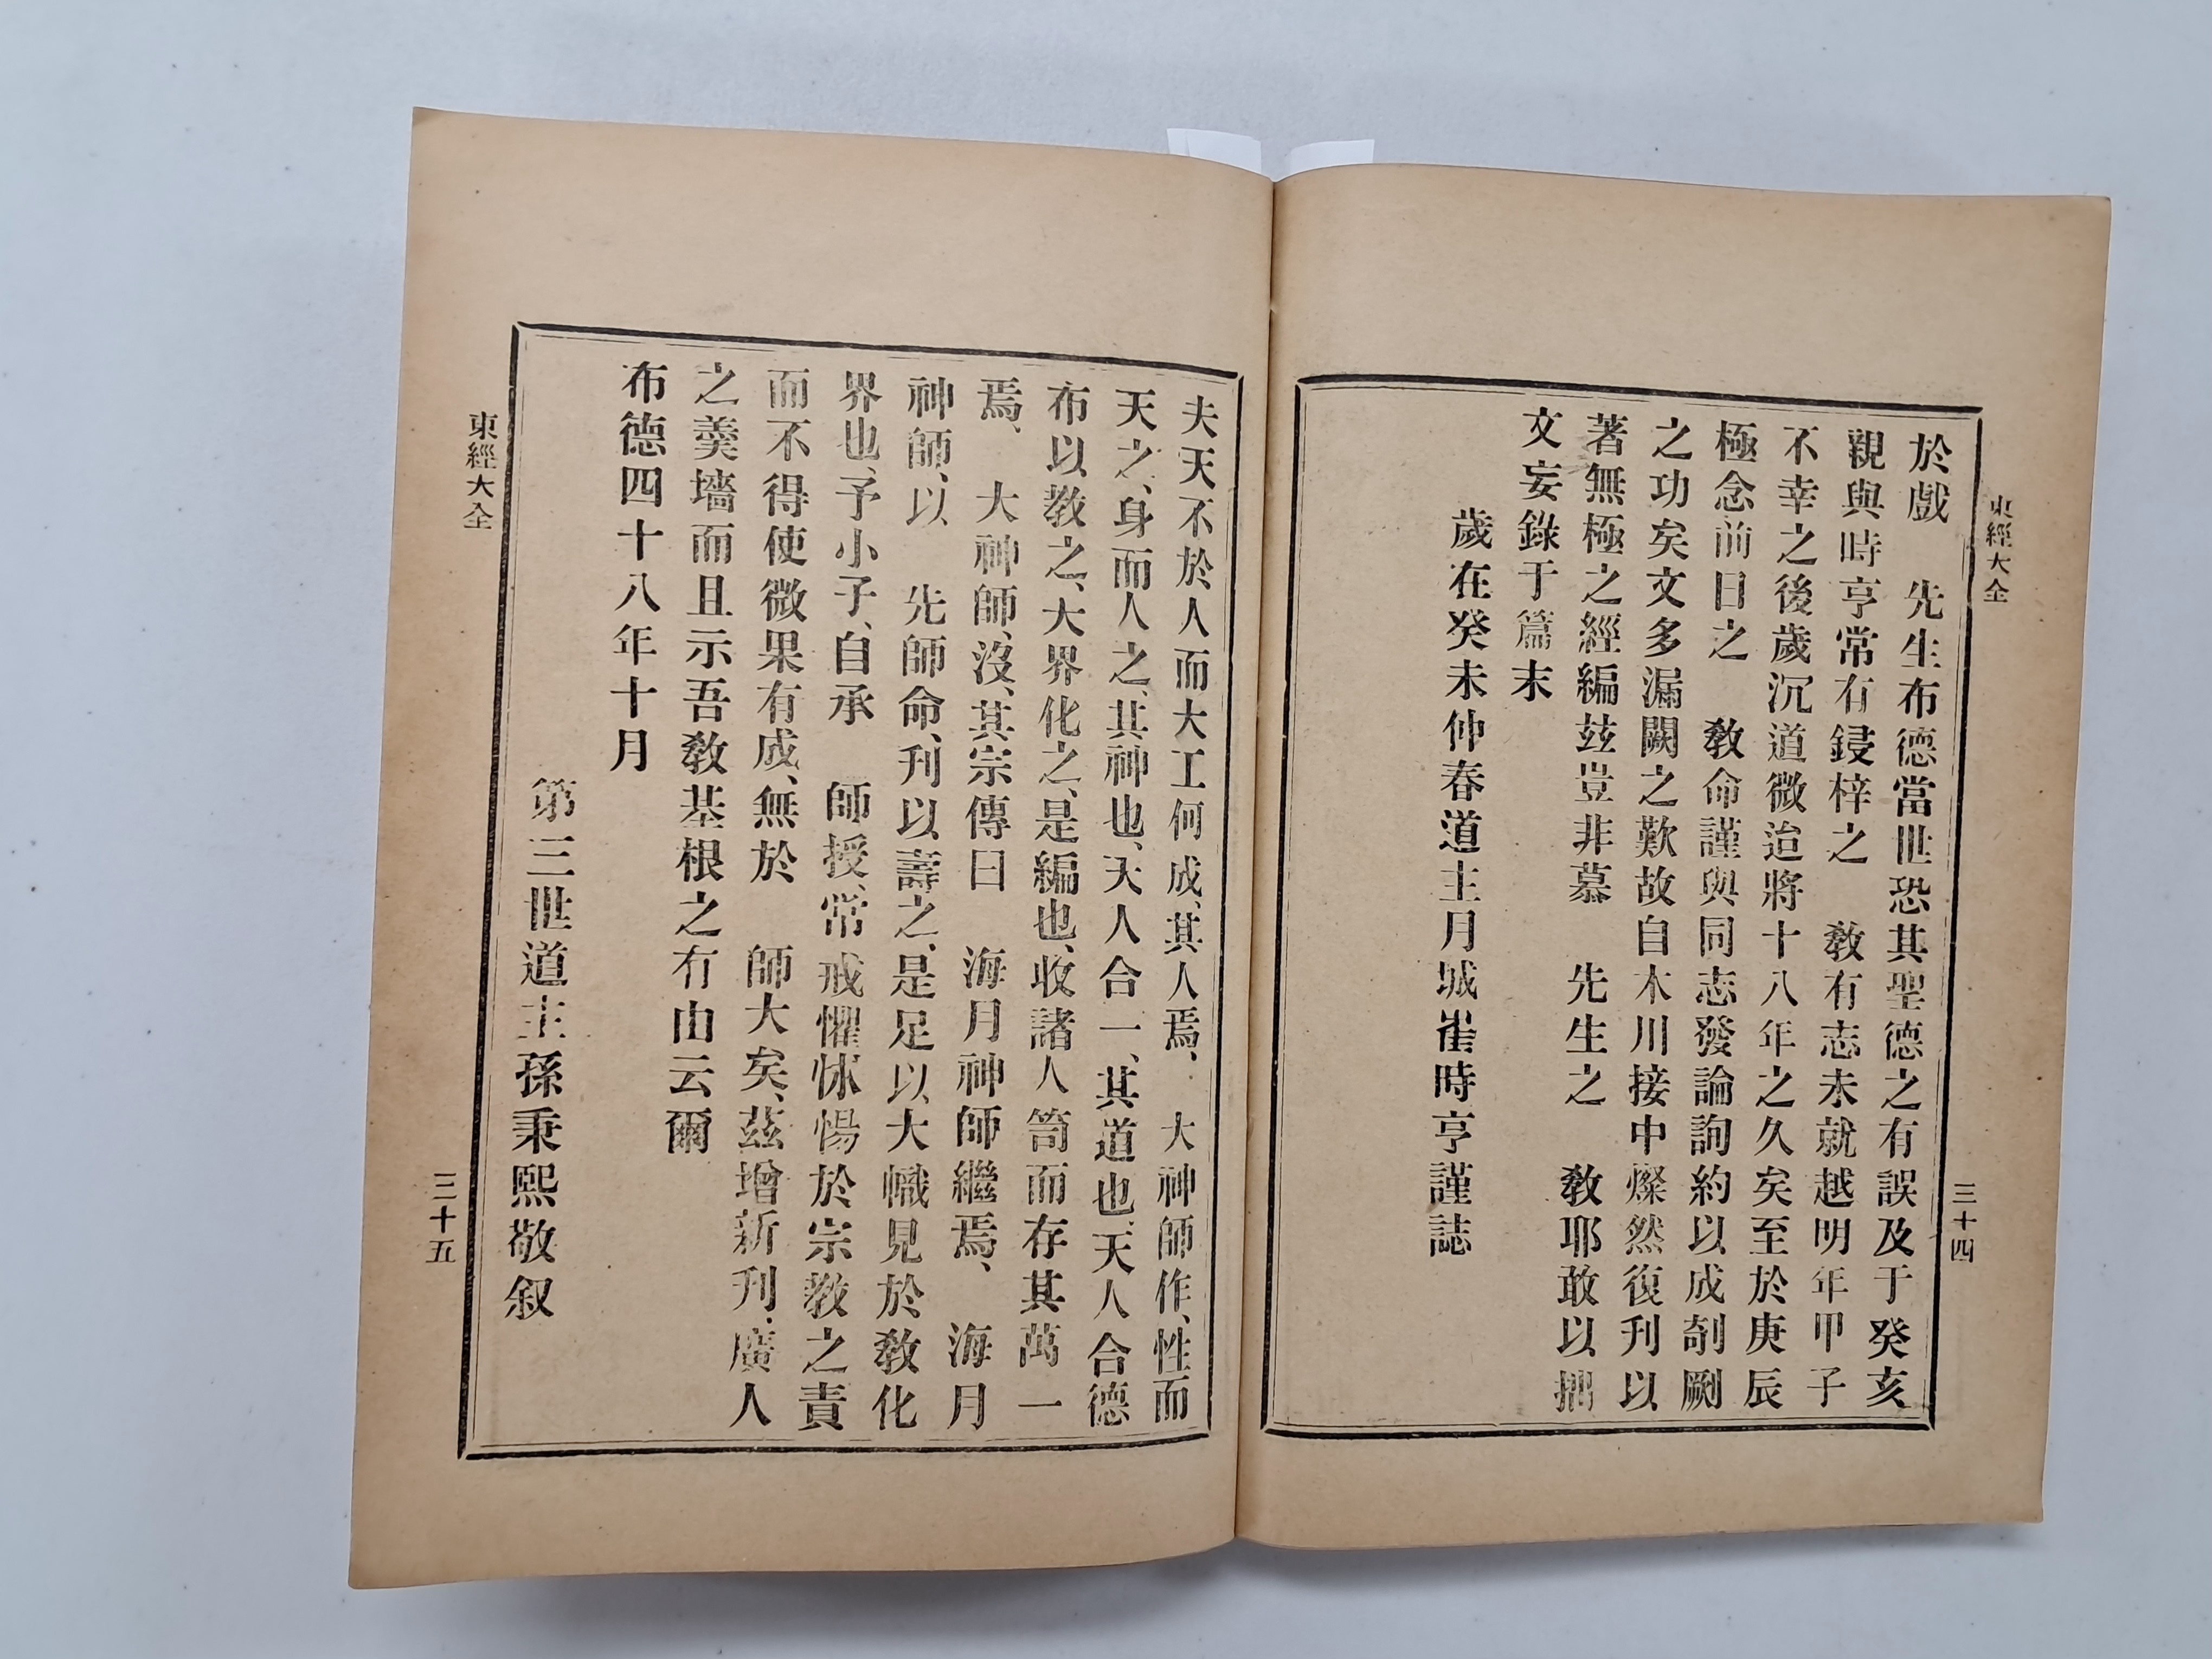 東經大全
三十四
於戲　先生布德當世恐其聖德之有誤及于癸亥
親與時亨常有鋟梓之　敎有志未就越明年甲子
不幸之後歲沉道微迨將十八年之久矣至於庚辰
極念前日之　敎命謹與同志發論詢約以成剞劂
之功矣文多漏闕之歎故自木川接中燦然復刊以
著無極之經編玆豈非慕　先生之　敎耶敢以拙
文妄錄于篇末
歲在癸未仲春道主月城崔時亨謹誌
夫天不於人而大工何成、其人焉、　大神師作、性而
天之、身而人之、其神也、天人合一、其道也、天人合德
布以敎之、大界化之、是編也、收諸人笥而存其萬一
焉、　大神師、沒、其宗傳曰　海月神師繼焉、　海月
神師、以　先師命、刊以壽之、是足以大幟見於敎化
界也、予小子、自承　師授、常戒懼怵惕於宗敎之責
而不得使微果有成、無於　師大矣、茲增新刊、廣人
之羹墻而且示吾敎基根之有由云爾
布德四十八年十月
第三世道主孫秉熙敬叙
東經大全
三十五